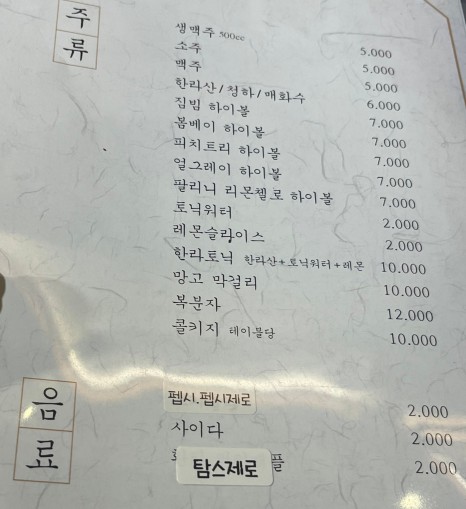 주류
생맥주 500cc 5.000
소주 5.000
맥주 5.000
한라산/청하/매화수 6.000
짐빔 하이볼 7.000
봄베이 하이볼 7.000
피치트리 하이볼 7.000
얼그레이 하이볼 7.000
팔리니 리몬첼로 하이볼 7.000
토닉워터 2.000
레몬슬라이스 2.000
한라토닉 한라산+토닉워터+레몬 10.000
망고 막걸리 10.000
복분자 12.000
콜키지 테이블당 10.000
음료
펩시.펩시제로 2.000
사이다 2.000
탐스제로 플 2.000